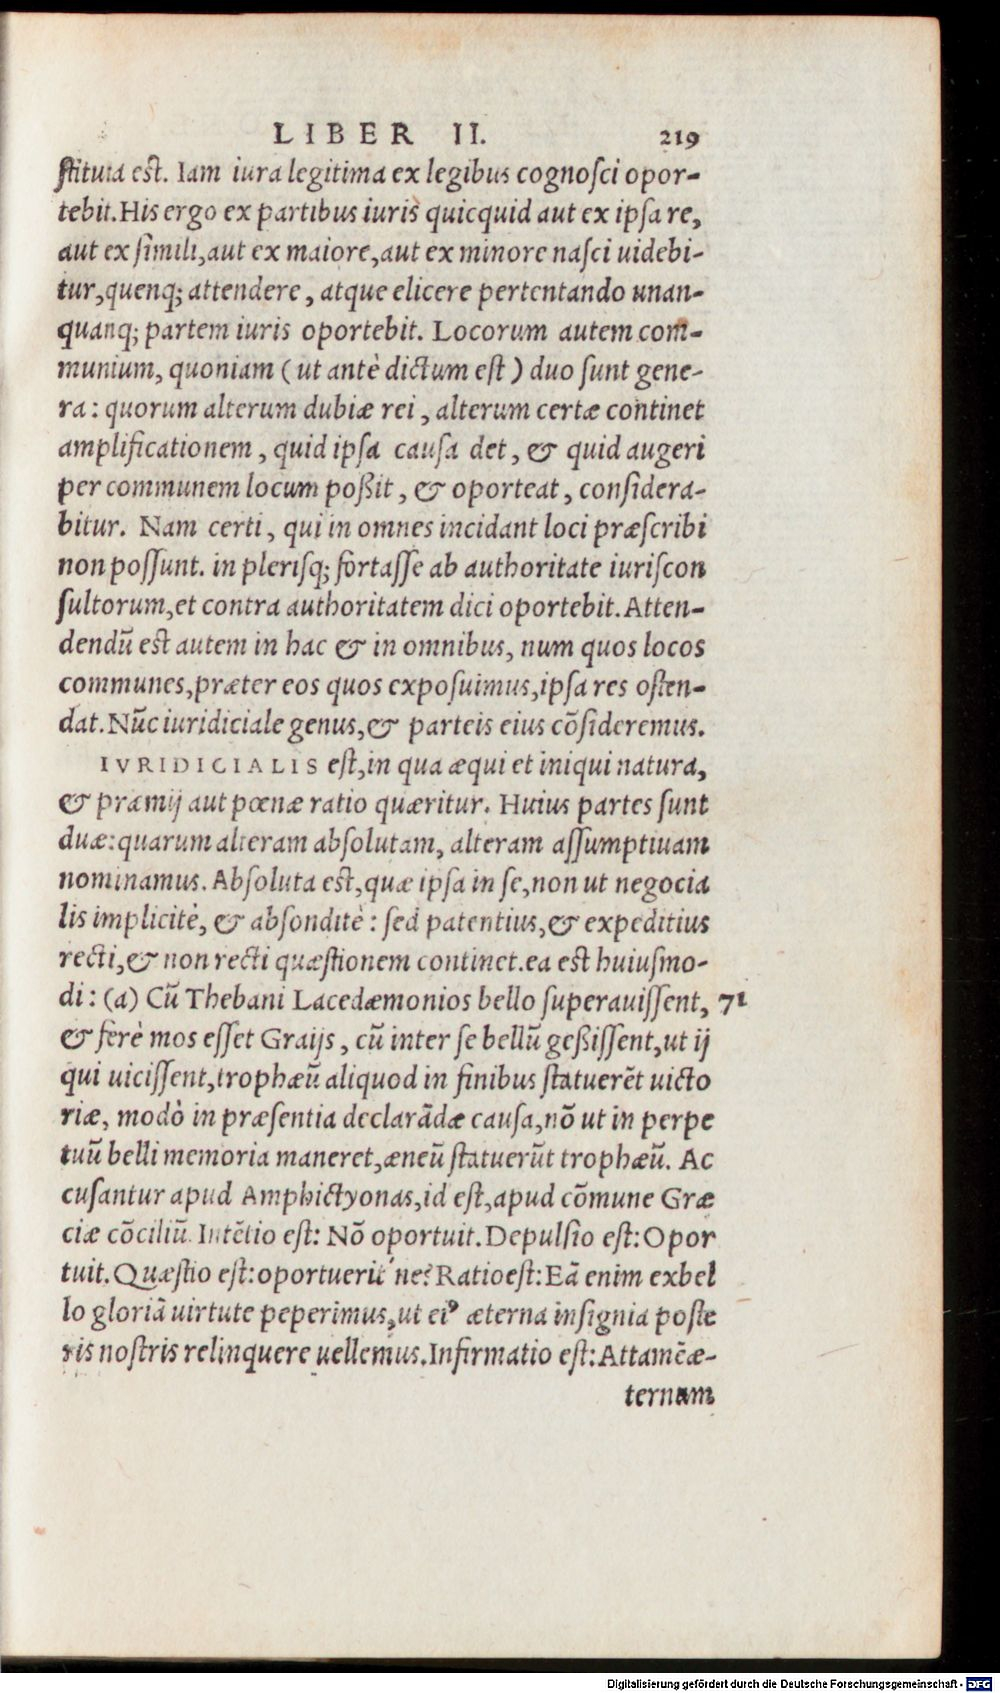 LIBER II. 219
ſtituta eſt. Iam iura legitima ex legibus cognoſci opor-
tebit. His ergo ex partibus iuris quicquid aut ex ipſa re,
aut ex ſimili, aut ex maiore, aut ex minore naſci uidebi-
tur, quenq; attendere, atque elicere pertentando unan-
quanq; partem iuris oportebit. Locorum autem com-
munium, quoniam (ut antè dictum eſt) duo ſunt gene-
ra: quorum alterum dubiæ rei, alterum certæ continet
amplificationem, quid ipſa cauſa det, & quid augeri
per communem locum poßit, & oporteat, conſidera-
bitur. Nam certi, qui in omnes incidant loci præſcribi
non poſſunt. in pleriſq; fortaſſe ab authoritate iuriſcon
ſultorum, et contra authoritatem dici oportebit. Atten-
dendũ eſt autem in hac & in omnibus, num quos locos
communes, præter eos quos expoſuimus, ipſa res oſten-
dat. Nũc iuridiciale genus, & parteis eius cõſideremus.
IVRIDICIALIS eſt, in qua æqui et iniqui natura,
& præmij aut pœnæ ratio quæritur. Huius partes ſunt
duæ: quarum alteram abſolutam, alteram aſſumptiuam
nominamus. Abſoluta eſt, quæ ipſa in ſe, non ut negocia
lis implicitè, & abſonditè: ſed patentius, & expeditius
recti, & non recti quæſtionem continet. ea eſt huiuſmo-
di: (a) Cũ Thebani Lacedæmonios bello ſuperauiſſent, 71
& ferè mos eſſet Graijs, cũ inter ſe bellũ geßiſſent, ut ij
qui uiciſſent, trophæũ aliquod in finibus ſtatuerẽt uicto
riæ, modò in præſentia declarãdæ cauſa, nõ ut in perpe
tuũ belli memoria maneret, æneũ ſtatuerũt trophæũ. Ac
cuſantur apud Amphictyonas, id eſt, apud cõmune Græ
ciæ cõciliũ. Intẽtio eſt: Nõ oportuit. Depulſio eſt: Opor
tuit. Quæſtio eſt: oportuerit ne? Ratio eſt: Eã enim ex bel
lo gloriã uirtute peperimus, ut eiꝰ æterna inſignia poſte
ris noſtris relinquere uellemus. Infirmatio eſt: Attamẽ æ-
ternam
Digitalisierung gefördert durch die Deutsche Forschungsgemeinschaft - DFG